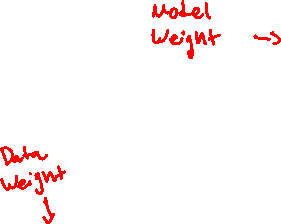 Model
Weight →
Data
Weight
↓